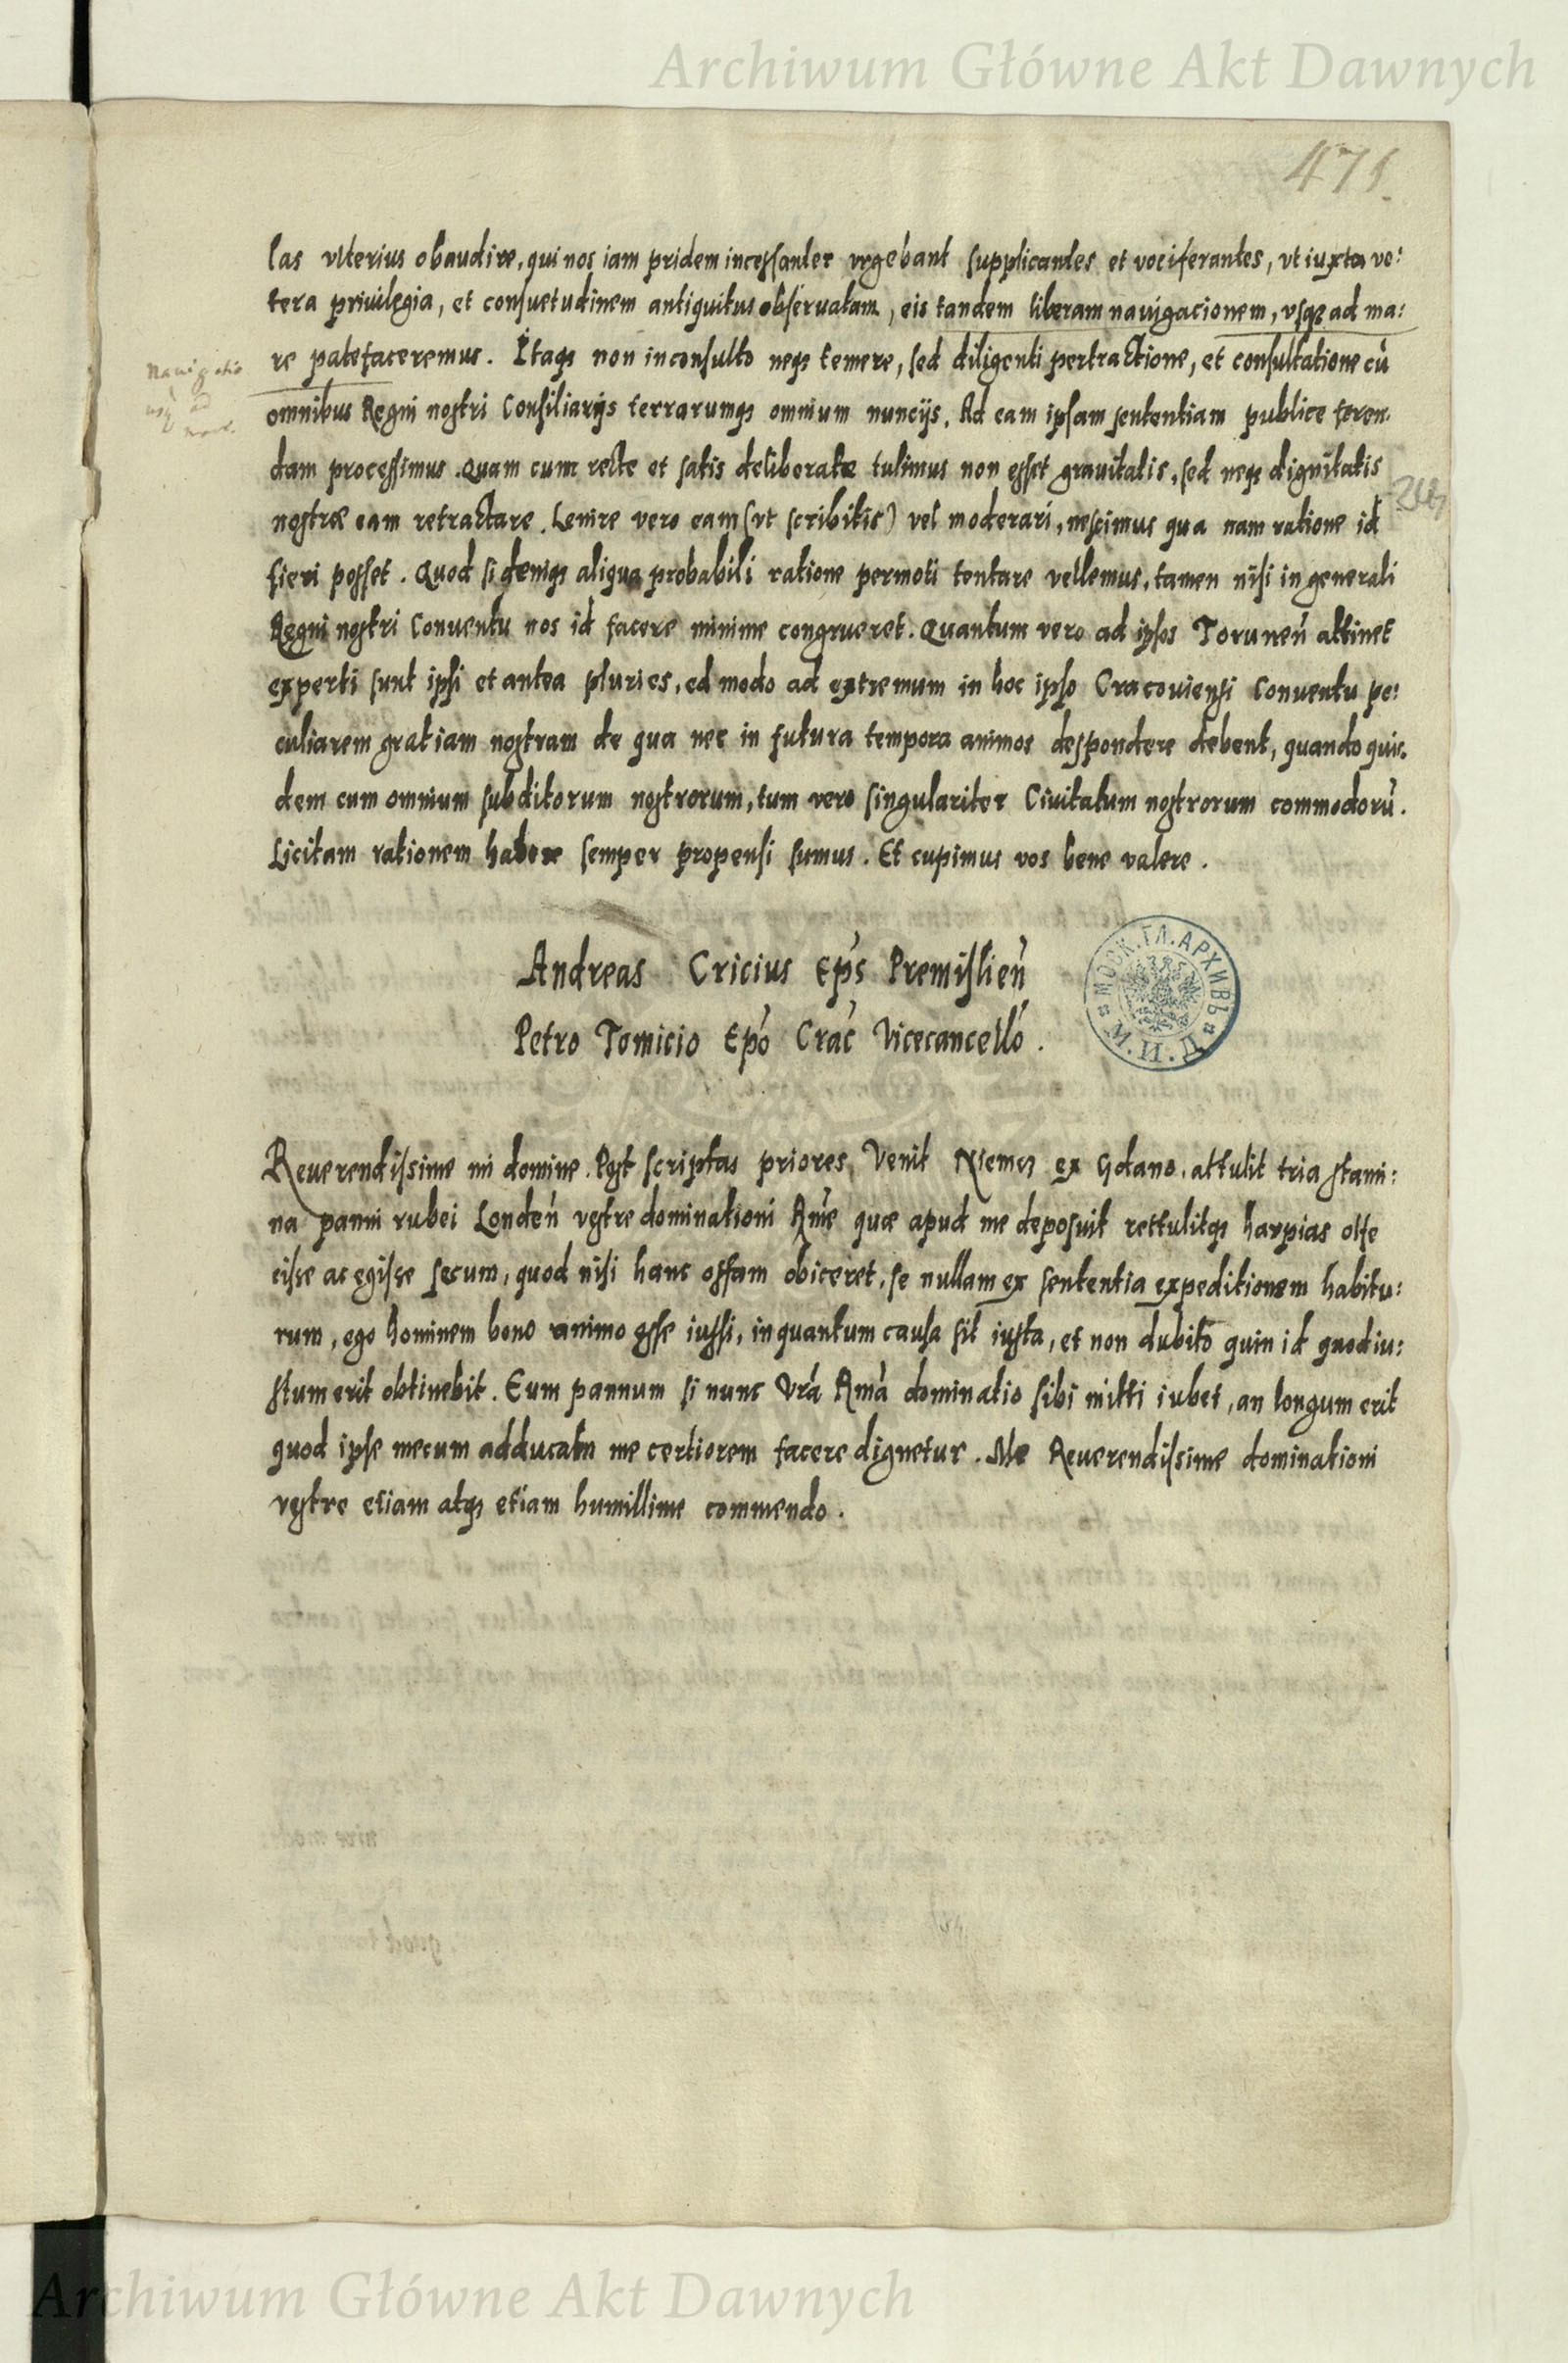 Archiwum Główne Akt Dawnych
471
las vlterius obaudire, qui nos iam pridem incessanter vrgebant supplicantes et vociferantes, vt iuxta ve:
tera priuilegia, et consuetudinem antiquitus obseruatam, eis tandem liberam nauigacionem, vsqꝫ ad ma:
re patefaceremus. Itaqꝫ non inconsulto neqꝫ temere, sed diligenti pertractione, et consultatione cū
Nauigatio
usqꝫ ad
mare.
omnibus Regni nostri Consiliarijs terrarumqꝫ omnium nuncijs. Ad eam ipsam sententiam publice feren:
dam processimus. Quam cum recte et satis deliberatæ tulimus non esset grauitatis, sed neqꝫ dignitatis
nostræ eam retractare. Lenire vero eam (vt scribitis) vel moderari, nescimus qua nam ratione id
fieri posset. Quod si deniqꝫ aliqua probabili ratione permoti tentare vellemus, tamen nisi in generali
Regni nostri Conuentu nos id facere minime congrueret. Quantum vero ad ipsos Toruneń attinet
experti sunt ipsi et antea pluries, ed modo ad extremum in hoc ipso Cracouiensi Conuentu pe:
culiarem gratiam nostram de qua nec in futura tempora animos despondere debent, quando qui:
dem cum omnium subditorum nostrorum, tum vero singulariter Ciuitatum nostrorum commodorū.
Licitam rationem habere semper propensi sumus. Et cupimus vos bene valere.
Andreas Cricius Ep̄s Premislień
Petro Tomicio Ep̄o Crac̄ Vicecancełło.
МОСК. ГЛ. АРХИВЪ
М. И. Д.
Reuerendissime mi domine. Post scriptas priores, Venit Niemcz ex Gdano, attulit tria stami:
na panni rubei Londeń vestre dominationi Rm̄e quæ apud me deposuit rettulitqꝫ harpias olfe
cisse ac egisse secum, quod nisi hanc offam obiceret, se nullam ex sententia expeditionem habitu:
rum, ego hominem bono animo esse iussi, in quantum causa sit iusta, et non dubito quin id quod iu:
stum erit obtinebit. Eum pannum si nunc Vrā Rm̄a dominatio sibi mitti iubet, an longum erit
quod ipse mecum adducam me certiorem facere dignetur. Me Reuerendissime dominationi
vestre etiam atqꝫ etiam humillime commendo.
Archiwum Główne Akt Dawnych